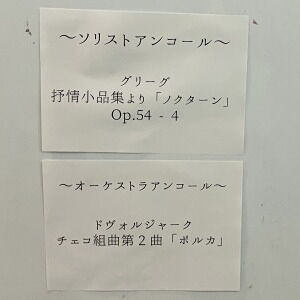 ～ソリストアンコール～
グリーグ
抒情小品集より「ノクターン」
Op.54 - 4
～オーケストラアンコール～
ドヴォルジャーク
チェコ組曲第２曲「ポルカ」